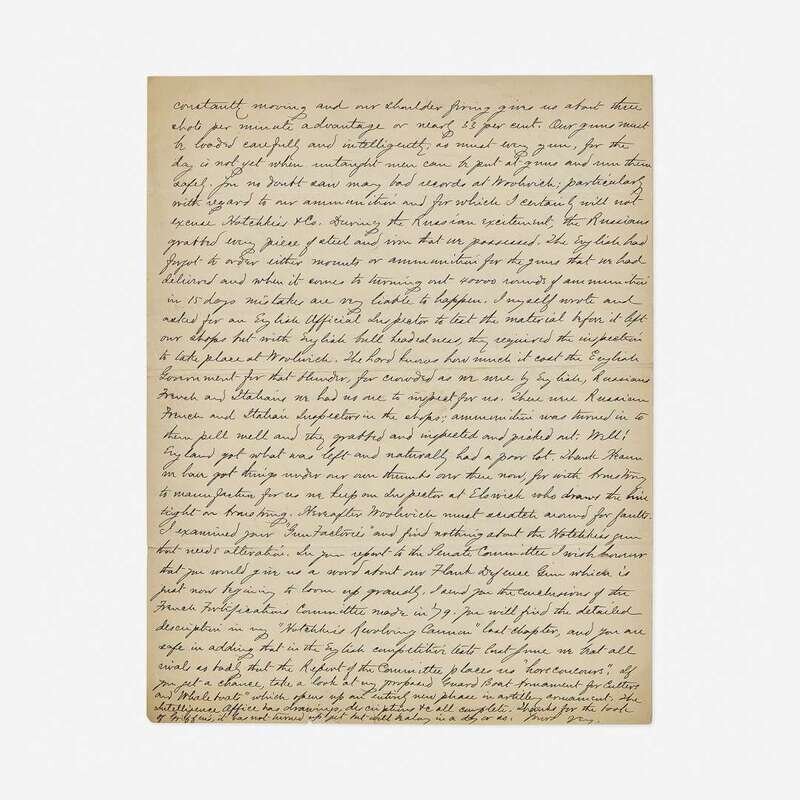 constantly moving and our shoulder firing gives us about three
shots per minute advantage or nearly 33 per cent. Our guns must
be loaded carefully and intelligently; as must every gun, for the
day is not yet when untaught men can be put at guns and run them
safely. You no doubt saw many bad records at Woolwich; particularly
with regard to our ammunition and for which I certainly will not
excuse Hotchkiss & Co. During the Russian excitement, the Russians
grabbed every piece of steel and iron that we possessed. The English had
forgot to order either mounts or ammunition for the guns that we had
delivered and when it comes to turning out 40000 rounds of ammunition
in 15 days mistakes are very liable to happen. I myself wrote and
asked for an English Official Inspector to test the material before it left
our shops but with English bull headedness, they required the inspection
to take place at Woolwich. The Lord knows how much it cost the English
Government for that blunder, for crowded as we were by English, Russians
French and Italians we had no one to inspect for us. There were Russian
French and Italian Inspectors in the shops; ammunition was turned in to
them pell mell and they grabbed and inspected and picked out. Well!
England got what was left and naturally had a poor lot. Thank Heaven
we have got things under our own thumbs over there now, for with Armstrong
to manufacture for us we keep our Inspector at Elswick who draws the line
tight on Armstrong. Hereafter Woolwich must scratch around for faults.
I examined your "Gun Factories" and find nothing about the Hotchkiss gun
that needs alteration. In your report to the Senate Committee I wish however
that you would give us a word about our Flank Defence Gun which is
just now beginning to loom up grandly. I send you the conclusions of the
French Fortifications Committee made in '79. You will find the detailed
description in my "Hotchkiss Revolving Cannon" last chapter, and you are
safe in adding that in the English competitive tests last June we beat all
rivals so badly that the Report of the Committee places us "hors concours". If
you get a chance, take a look at my proposed Guard Boat Armament for Cutters
and Whaleboats" which opens up an entirely new phase in artillery armament. The
Intelligence Office has drawings, descriptions &c all complete. Thanks for the book
of it has not turned up yet but will in a day or so. Yours Very